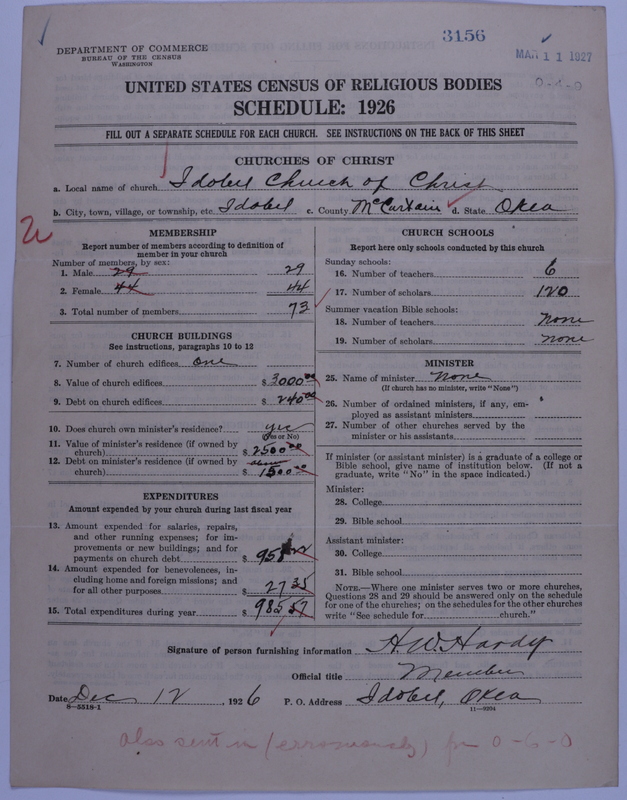 3156
MAR 11 1927
0-4-0
DEPARTMENT OF COMMERCE
BUREAU OF THE CENSUS
WASHINGTON
UNITED STATES CENSUS OF RELIGIOUS BODIES
SCHEDULE: 1926
FILL OUT A SEPARATE SCHEDULE FOR EACH CHURCH. SEE INSTRUCTIONS ON THE BACK OF THIS SHEET
CHURCHES OF CHRIST
a. Local name of church Idobel Church of Christ
b. City, town, village, or township, etc. Idobel c. County McCurtain d. State Okla
MEMBERSHIP
Report number of members according to definition of
member in your church
Number of members, by sex:
1. Male 29 29
2. Female 44 44
3. Total number of members 73
CHURCH BUILDINGS
See instructions, paragraphs 10 to 12
7. Number of church edifices one
8. Value of church edifices $ 3000 00
9. Debt on church edifices $ 240 00
10. Does church own minister's residence? yes
(Yes or No)
11. Value of minister's residence (if owned by
church) $ 2500 00
12. Debt on minister's residence (if owned by
church) $ 1500 00
EXPENDITURES
Amount expended by your church during last fiscal year
13. Amount expended for salaries, repairs,
and other running expenses; for im-
provements or new buildings; and for
payments on church debt $ 958 22
14. Amount expended for benevolences, in-
cluding home and foreign missions; and
for all other purposes $ 27 35
15. Total expenditures during year $ 985 57
CHURCH SCHOOLS
Report here only schools conducted by this church
Sunday schools:
16. Number of teachers 6
17. Number of scholars 120
Summer vacation Bible schools:
18. Number of teachers none
19. Number of scholars none
MINISTER
25. Name of minister None
(If church has no minister, write "None")
26. Number of ordained ministers, if any, em-
ployed as assistant ministers
27. Number of other churches served by the
minister or his assistants
If minister (or assistant minister) is a graduate of a college or
Bible school, give name of institution below. (If not a
graduate, write "No" in the space indicated.)
Minister:
28. College
29. Bible school
Assistant minister:
30. College
31. Bible school
NOTE.—Where one minister serves two or more churches,
Questions 28 and 29 should be answered only on the schedule
for one of the churches; on the schedules for the other churches
write "See schedule for church."
Signature of person furnishing information H. W. Hardy
Official title Member
Date Dec 12, 1926 P. O. Address Idobel, Okla
8-5518-1 11-9204
also sent in (erroneously) for 0-6-0